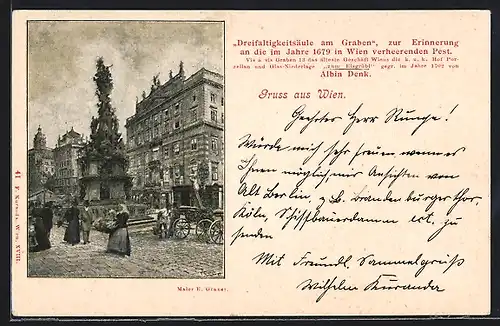 „Dreifaltigkeitsäule am Graben“, zur Erinnerung
an die im Jahre 1679 in Wien verheerenden Pest.
Vis à vis Graben 13 das älteste Geschäft Wiens die k. u. k. Hof Por-
zellan und Glas-Niederlage „zum Eisgrübl“ gegr. im Jahre 1702 von
Albin Denk.
Gruss aus Wien.
Geehrter Herr Runge!
Würde mich sehr freuen wenn es
Ihnen möglich wär Ansichten von
Alt Berlin, z.b. Brandenburger thor,
Köln, Schiffbauerdamm ect. zu
senden
Mit Freundl. Sammelgruß
Wilhelm Kuranda
Maler E. Graner.
41 F. Wien, XVIII.